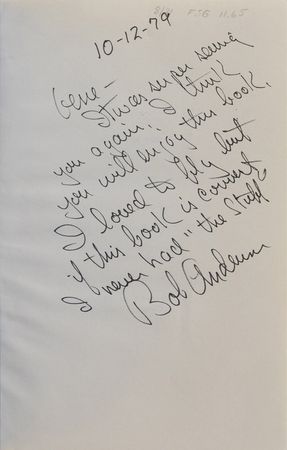 FSG 11.65
10-12-79
Gene-
It was super seeing
you again. I think
you will enjoy this book.
I loved to fly but
if this book is correct
I never had "the stuff"
Bob Anderson